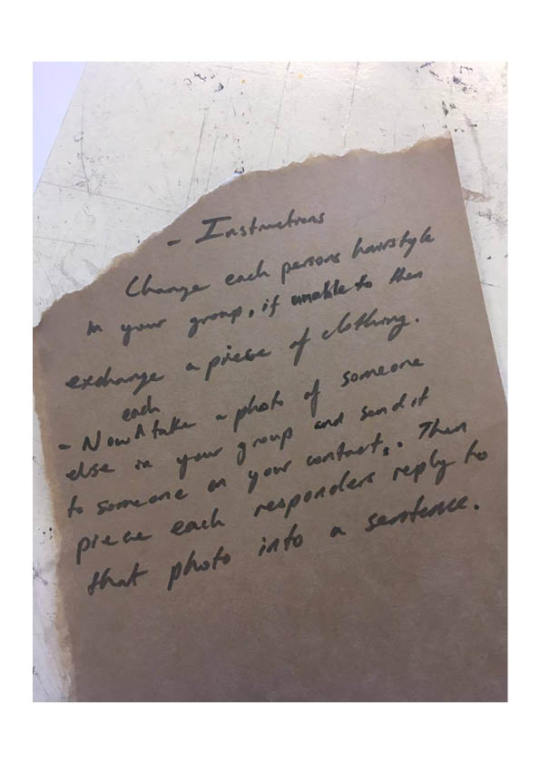 - Instructions
Change each persons hairstyle
in your group, if unable to then
exchange a piece of clothing.
each
- Now take a photo of someone
else in your group and send it
to someone on your contacts. Then
piece each responders reply to
that photo into a sentence.